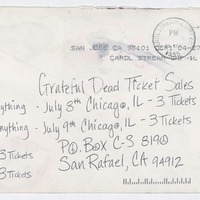 PM
SAN JOSE CA 95101
CAROL STREAM
IL
Grateful Dead Ticket Sales
nything - July 8th Chicago, IL - 3 Tickets
nything - July 9th Chicago, IL - 3 Tickets
3 Tickets
P.O. Box C-S 8190
3 Tickets
San Rafael, CA 94912